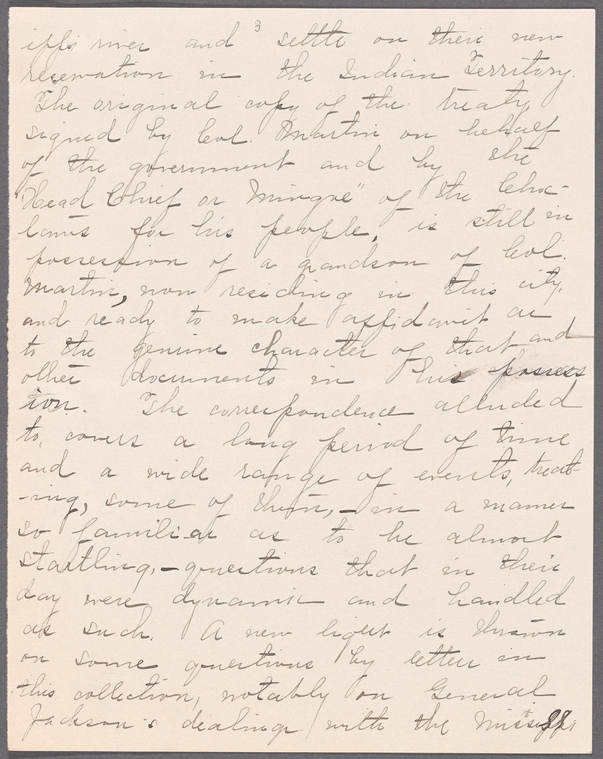 3
ippi river and settle on their new
reservation in the Indian Territory.
The original copy of the treaty
signed by Col. Martin on behalf
of the government and by the
"Head Chief or Mingoe" of the Choc-
taws for his people, is still in
possession of a grandson of Col.
Martin, now residing in this city,
and ready to make affidavit as
to the genuine character of that and
other documents in his possess
ion. The correspondence alluded
to, covers a long period of time
and a wide range of events, treat-
-ing, some of them, - in a manner
so familiar as to be almost
startling, - questions that in their
day were dynamic and handled
as such. A new light is thrown
on some questions by letters in
this collection, notably on General
Jackson's dealings with the